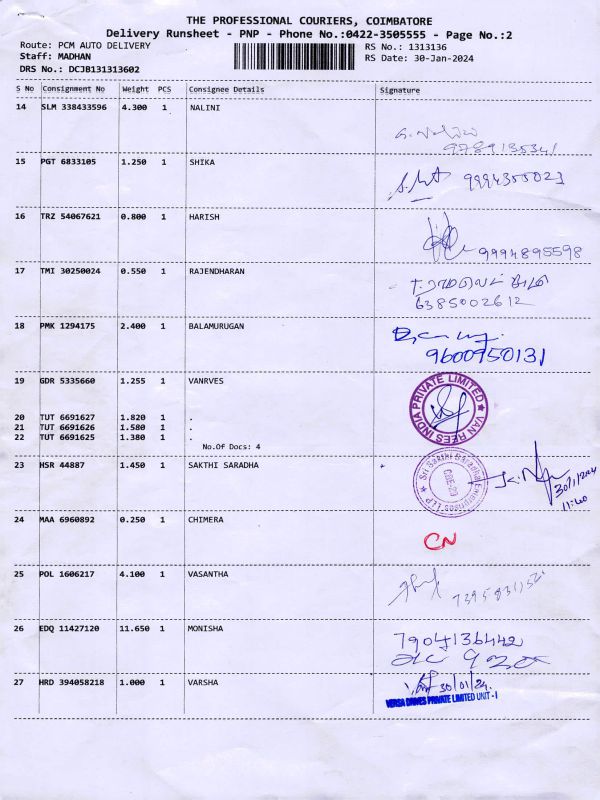 THE PROFESSIONAL COURIERS, COIMBATORE
Delivery Runsheet - PNP - Phone No.:0422-3505555 - Page No.:2
Route: PCM AUTO DELIVERY
RS No.: 1313136
Staff: MADHAN
RS Date: 30-Jan-2024
DRS No.: DCJB131313602
S No Consignment No Weight PCS Consignee Details Signature
14 SLM 338433596 4.300 1 NALINI
9789135341
15 PGT 6833105 1.250 1 SHIKA
9994355023
16 TRZ 54067621 0.800 1 HARISH
9994895598
17 TMI 30250024 0.550 1 RAJENDHARAN
6385002612
18 PMK 1294175 2.400 1 BALAMURUGAN
9600950131
19 GDR 5335660 1.255 1 VANRVES
VAN REES INDIA PRIVATE LIMITED
20 TUT 6691627 1.820 1 .
21 TUT 6691626 1.580 1 .
22 TUT 6691625 1.380 1 .
No.Of Docs: 4
23 HSR 44887 1.450 1 SAKTHI SARADHA
Sri Sakthi Saradha Enterprises LLP
30/1/2024
11:40
24 MAA 6960892 0.250 1 CHIMERA
CN
25 POL 1606217 4.100 1 VASANTHA
26 EDQ 11427120 11.650 1 MONISHA
7904136442
27 HRD 394058218 1.000 1 VARSHA
30/01/24.
VERSA DRIVES PRIVATE LIMITED UNIT - I